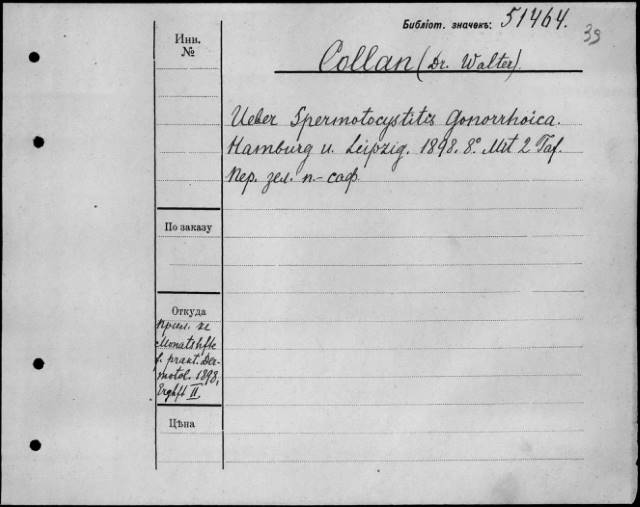 Библіот. значекъ: 51464.
39
Инв.
№
Collan (Dr. Walter).
Ueber Spermotocystitis Gonorrhoica.
Hamburg u. Leipzig. 1898. 8°. Mit 2 Taf.
Пер. зел. п.-саф.
По заказу
Откуда
Прил. къ
Monatshfte
f. pract. Der-
matol. 1898,
Erghft II.
Цѣна